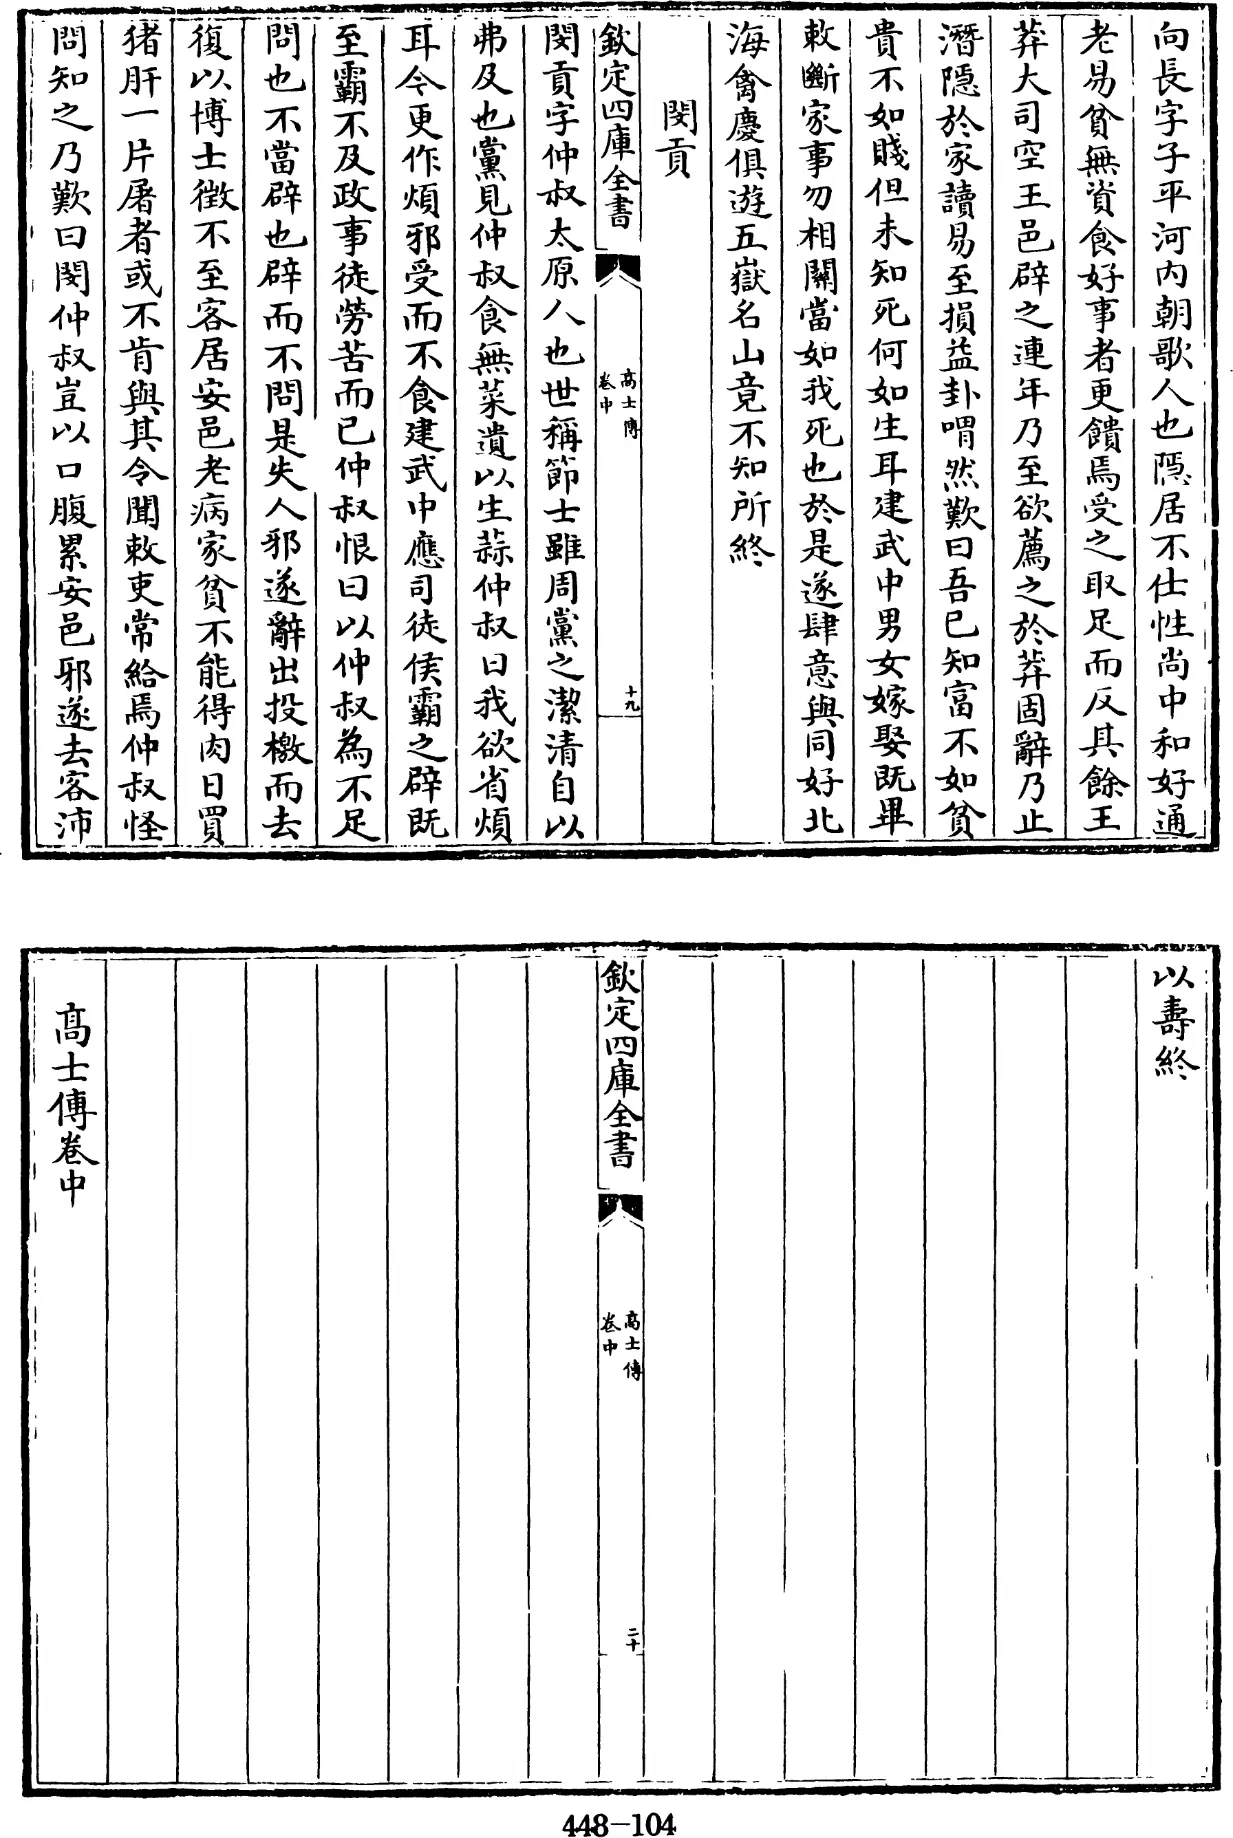 向長字子平河内朝歌人也隱居不仕性尚中和好通
老易貧無資食好事者更饋焉受之取足而反其餘王
莽大司空王邑辟之連年乃至欲薦之於莽固辭乃止
潛隱於家讀易至損益卦喟然歎曰吾已知富不如貧
貴不如賤但未知死何如生耳建武中男女嫁娶既畢
敕斷家事勿相關當如我死也於是遂肆意與同好北
海禽慶俱遊五嶽名山竟不知所終
閔貢
欽定四庫全書
高士傳
卷中
十九
閔貢字仲叔太原人也世稱節士雖周黨之潔清自以
弗及也黨見仲叔食無菜遺以生蒜仲叔曰我欲省煩
耳今更作煩邪受而不食建武中應司徒侯霸之辟既
至霸不及政事徒勞苦而已仲叔恨曰以仲叔為不足
問也不當辟也辟而不問是失人邪遂辭出投檄而去
復以博士徴不至客居安邑老病家貧不能得肉日買
猪肝一片屠者或不肯與其令聞敕吏常給焉仲叔怪
問知之乃歎曰閔仲叔豈以口腹累安邑邪遂去客沛
以壽終
欽定四庫全書
高士傳
卷中
二十
高士傳卷中
448-104